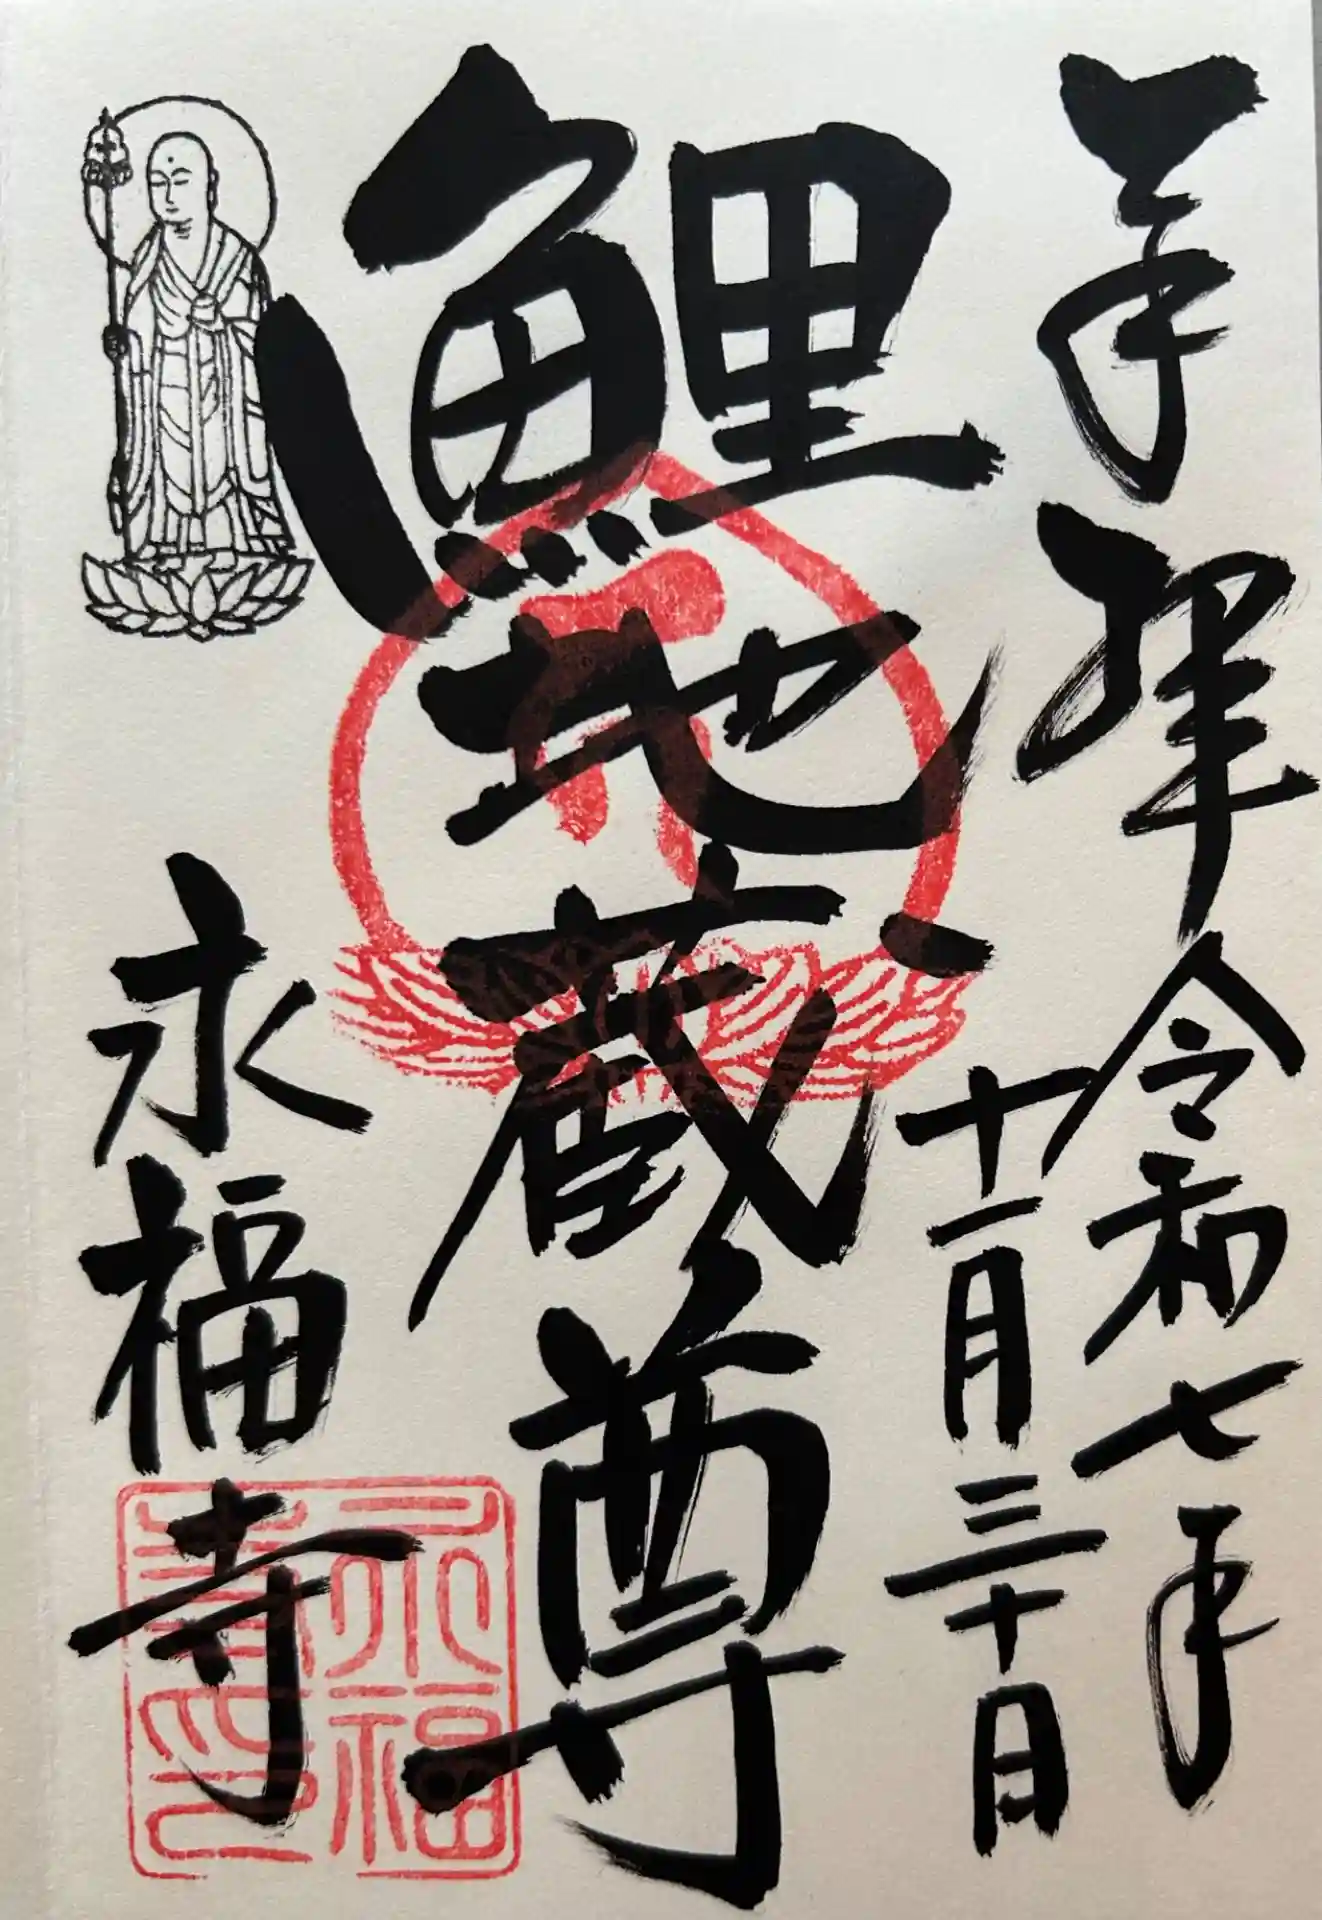 奉拝 令和七年
十一月三十日
鯉地蔵尊
永福寺
永福
寺印